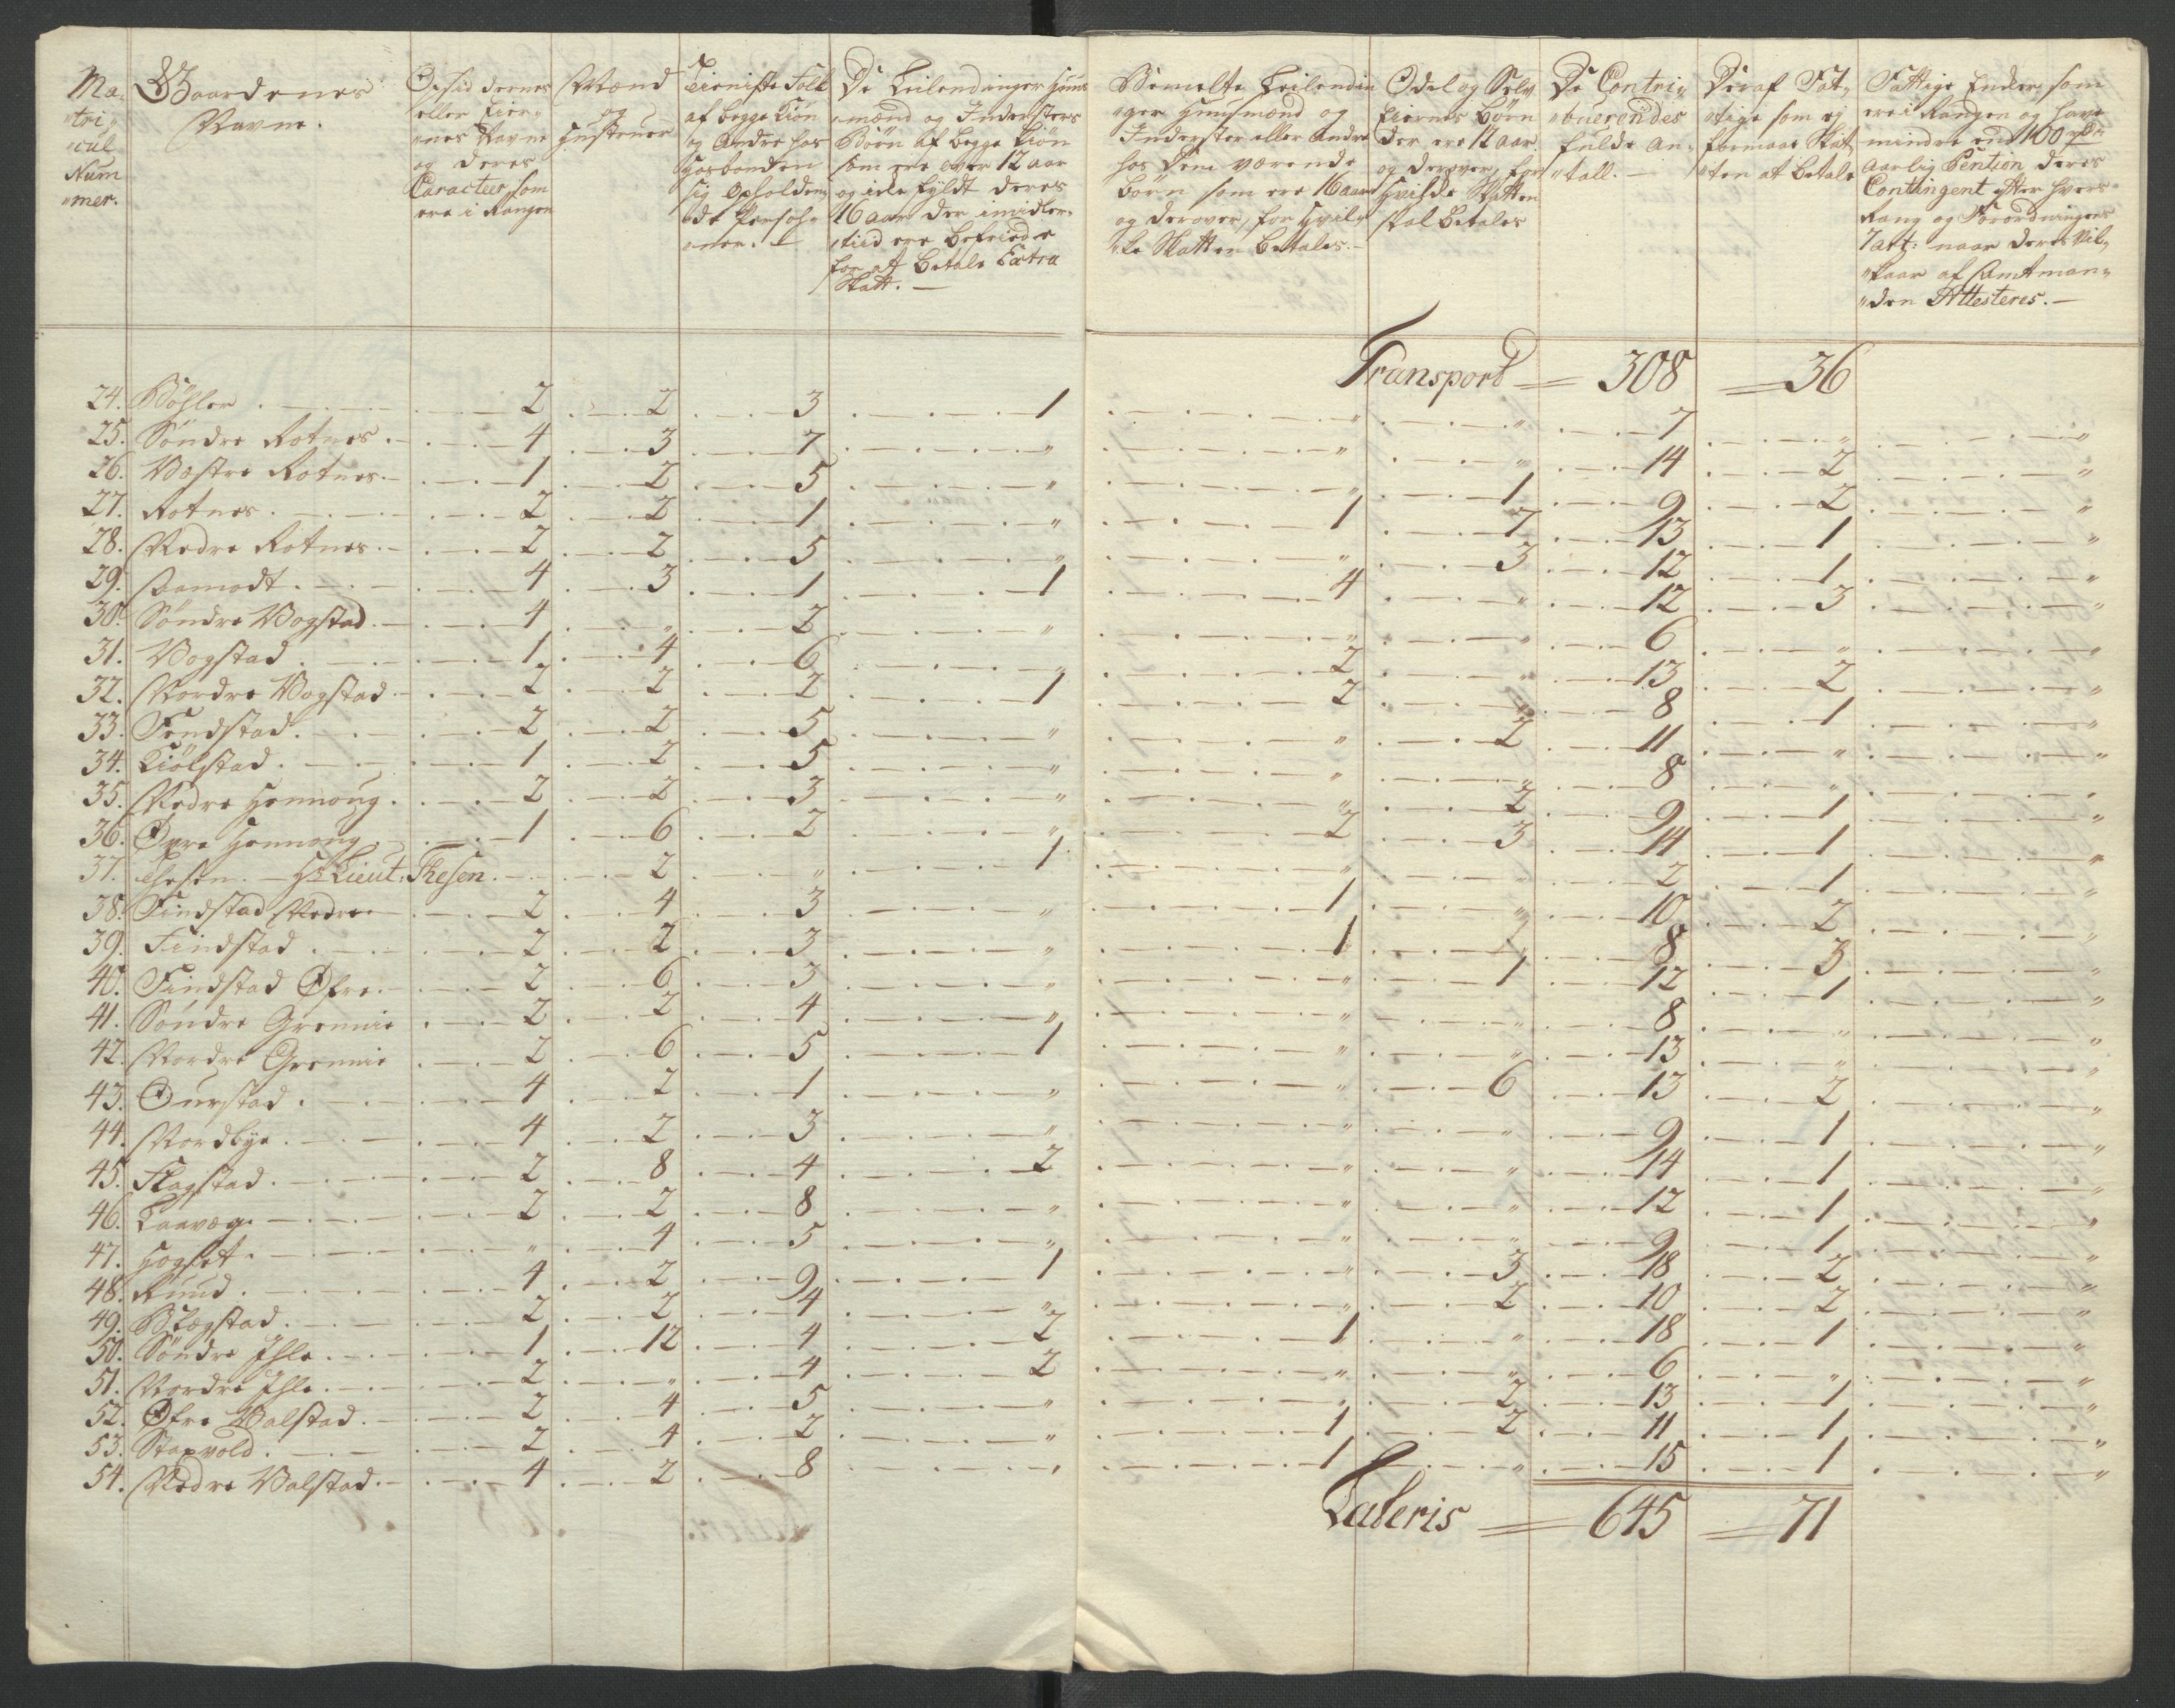 Ma„
„tri„
„cul
Num
„mer.
Gaardenes
Navne.
Opsiddernes
eller Eier„
„nes Navne
og deres
Caracteer, som
ere i Rangen
Mænd
og
Hustruer
Tieniste Folk
af begge Kiøn
og Andre hos
Hosbonden
sig opholden„
de Persoh„
„ner. —
De Leilendinger Huus
„mænd og Indersters
Børn af begge Kiøn
som ere over 12 aar
og icke fyldt deres
16 aar der imidler„
„tiid ere befriede
for at betale Extra
Skatt. —
Bemelte Leilendin
„ger Huusmænd og
Inderster eller Andre
hos Dem værende
børn som ere 16 aar
og derover, for hvil„
„ke Skatten betales. —
Odel og Selv
Eiernes børn
der ere 12 aar
og derover, for
hvilke Skatten
skal betales
De Contri„
„buerendes
fulde an„
„tall. —
Deraf Fat„
„tige som ej
formaar Skat
„ten at betale
Fattige Enker, som
ere i Rangen og have
mindre end 100 rdr
aarlig Pention, deres
Contingent efter hver
Rang og Forordningens
7 art: naar deres Vil„
„kaar af Amtman„
„den Attesteres. —
Transport 308 36
24. Bøhler 2 2 3 1 „ „ 7 „ „
25. Søndre Rotnes 4 3 7 „ „ „ 14 2 „
26. Vestre Rotnes 1 2 5 „ „ 1 9 2 „
27. Rotnes 2 2 1 „ 1 7 13 1 „
28. Nedre Rotnes 2 2 5 „ „ 3 12 1 „
29. Aamodt 4 3 1 1 4 „ 12 3 „
30. Søndre Wogstad 4 „ 2 „ „ „ 6 „ „
31. Wogstad 1 4 6 „ 2 „ 13 2 „
32. Nordre Wogstad 2 2 2 1 2 „ 8 1 „
33. Fendstad 2 2 5 „ „ 2 11 „ „
34. Kiølstad 1 2 5 „ „ „ 8 „ „
35. Nedre Hennong 2 2 3 „ „ 2 9 1 „
36. Øvre Hennong 1 6 2 „ 2 3 14 1 „
37. Thesen. — Hr Lieut: Thesen 2 „ 1 „ „ 2 1 „
38. Findstad Nedre 2 4 3 „ 1 „ 10 2 „
39. Findstad 2 2 3 „ 1 „ 8 3 „
40. Findstad Øfre 2 6 3 „ „ 1 12 1 „
41. Søndre Grønnie 2 2 4 „ „ „ 8 „ „
42. Nordre Grønnie 2 6 5 1 „ „ 13 „ „
43. Ourstad 4 2 1 „ „ 6 13 2 „
44. Nordbye 4 2 3 „ „ „ 9 1 „
45. Flagstad 2 8 4 2 „ „ 14 1 „
46. Laaveg 2 2 8 „ „ „ 12 1 „
47. Hogset „ 4 5 „ „ „ 9 1 „
48. Ruud 4 2 9 1 „ 3 18 2 „
49. Blegstad 2 2 4 „ „ 2 10 2 „
50. Søndre Ihle 1 12 4 2 1 „ 18 1 „
51. Nordre Ihle 2 „ 4 2 „ „ 6 „ „
52. Øfre Walstad 2 4 5 „ „ 2 13 1 „
53. Stapvold 2 4 2 „ 1 2 11 1 „
54. Nedre Walstad 4 2 8 „ 1 „ 15 1 „
Lateris 645 71